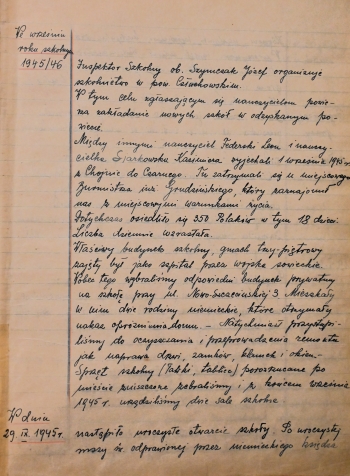 We wrześniu
roku szkolnym
1945/46
Inspektor Szkolny ob. Szymczak Józef organizuje
szkolnictwo w pow. Człuchowskim.
W tym celu zgłaszającym się nauczycielom powie-
rza zakładanie nowych szkół w odzyskanym po-
wiecie.
Między innymi nauczyciel Federski Leon i nauczy-
cielka Kazimiera wyjechali 1 września 1945 r.
z Chojnic do Czarnego. Tu zatrzymali się u miejscowego
Burmistrza inż. Grudzińskiego, który zaznajomił
nas z miejscowymi warunkami życia.
Dotychczas osiedliło się 350 Polaków w tym 18 dzieci.
Liczba dziennie wzrastała.
Właściwy budynek szkolny, gmach trzy-piętrowy
zajęty był jako szpital przez wojska sowieckie.
Wobec tego wybraliśmy odpowiedni budynek prywatny
na szkołę przy ul. Nowo-Szczecińskiej 3. Mieszkały
w nim dwie rodziny niemieckie, które otrzymały
nakaz opróżnienia domu. - Natychmiast przystąpi-
liśmy do oczyszczania i przeprowadzenia remontu
jak naprawa drzwi, zamków, klamek i okien.-
Sprzęt szkolny (ławki, tablice) porozrzucane po
mieście zniszczone zebraliśmy i z końcem września
1945 r. urządziliśmy dwie sale szkolne.
W dniu
29. IX. 1945 r. nastąpiło uroczyste otwarcie szkoły. Po uroczystej
mszy św. odprawionej przez niemieckiego księdza